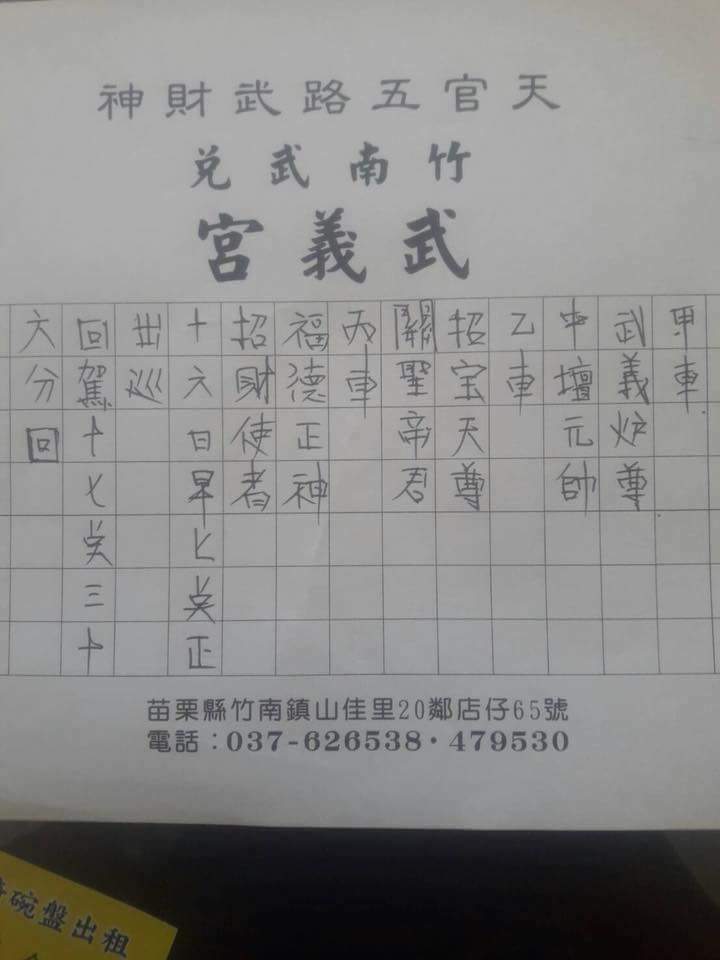 天官五路武財神
竹南武兌
武義宮
甲車
武義炉尊
中壇元帥
乙車
招宝天尊
關聖帝君
丙車
福德正神
招財使者
十六日早七奌正
出巡
回駕十七奌三十
六分回
苗栗縣竹南鎮山佳里20鄰店仔65號
電話：037-626538·479530
碗盤出租